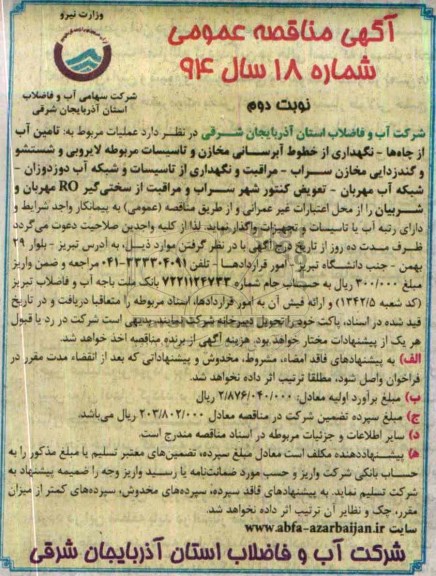 وزارت نیرو
شرکت سهامی آب و فاضلاب
استان آذربایجان شرقی
آگهی مناقصه عمومی
شماره ۱۸ سال ۹۴
نوبت دوم
شرکت آب و فاضلاب استان آذربایجان شرقی در نظر دارد عملیات مربوط به: تامین آب
از چاه‌ها - نگهداری از خطوط آبرسانی مخازن و تاسیسات مربوطه لایروبی و شستشو
و گندزدایی مخازن سراب - مراقبت و نگهداری از تاسیسات و شبکه آب دوزدوزان -
شبکه آب مهربان - تعویض کنتور شهر سراب و مراقبت از سختی‌گیر RO مهربان و
شربیان را از محل اعتبارات غیر عمرانی و از طریق مناقصه (عمومی) به پیمانکار واجد شرایط و
دارای رتبه آب یا تاسیسات و تجهیزات واگذار نماید. لذا از کلیه واجدین صلاحیت دعوت می‌گردد
ظرف مدت ده روز از تاریخ درج آگهی با در نظر گرفتن موارد ذیل، به آدرس تبریز - بلوار ۲۹
بهمن - جنب دانشگاه تبریز - امور قراردادها - تلفن ۳۳۳۰۴۰۹۱-۰۴۱ مراجعه و ضمن واریز
مبلغ ۳۰۰/۰۰۰ ریال به حساب جام شماره ۷۲۲۱۱۲۴۷۳۳ بانک ملت باجه آب و فاضلاب تبریز
(کد شعبه ۱۳۴۲/۵) و ارائه فیش آن به امور قراردادها، اسناد مربوطه را متعاقبا دریافت و در تاریخ
قید شده در اسناد، پاکت خود را تحویل دبیرخانه شرکت نمایند. بدیهی است شرکت در رد یا قبول
هر یک از پیشنهادات مختار خواهد بود. هزینه آگهی از برنده مناقصه اخذ خواهد شد.
الف) به پیشنهادهای فاقد امضاء، مشروط، مخدوش و پیشنهاداتی که بعد از انقضاء مدت مقرر در
فراخوان واصل شود، مطلقا ترتیب اثر داده نخواهد شد.
ب) مبلغ برآورد اولیه معادل: ۲/۸۷۶/۰۴۰/۰۰۰ ریال
ج) مبلغ سپرده تضمین شرکت در مناقصه معادل ۲۰۳/۸۰۲/۰۰۰ ریال می‌باشد.
د) سایر اطلاعات و جزئیات مربوطه در اسناد مناقصه مندرج است.
ه) پیشنهاددهنده مکلف است معادل مبلغ سپرده، تضمین‌های معتبر تسلیم یا مبلغ مذکور را به
حساب بانکی شرکت واریز و حسب مورد ضمانت‌نامه یا رسید واریز وجه را ضمیمه پیشنهاد به
شرکت تسلیم نماید. به پیشنهادهای فاقد سپرده، سپرده‌های مخدوش، سپرده‌های کمتر از میزان
مقرر، چک و نظایر آن ترتیب اثر داده نخواهد شد.
سایت www.abfa-azarbaijan.ir
شرکت آب و فاضلاب استان آذربایجان شرقی